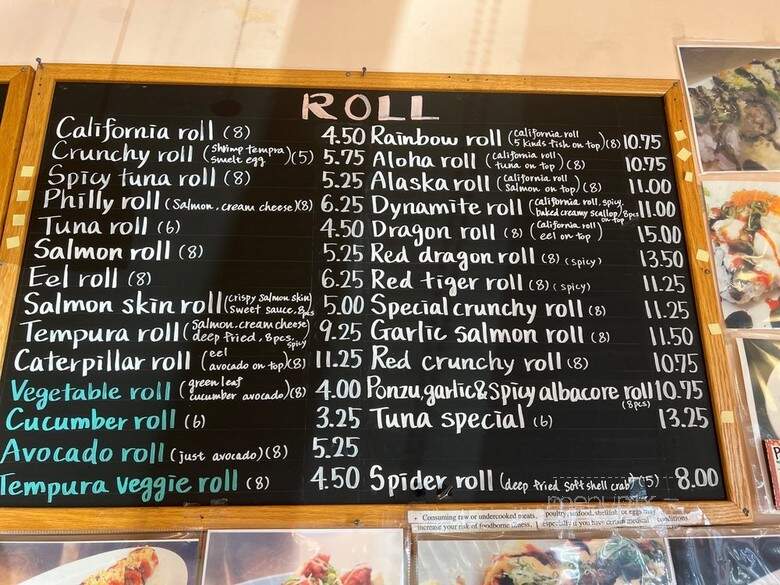 ROLL
California roll (8) 4.50
Crunchy roll (shrimp tempra smelt egg)(5) 5.75
Spicy tuna roll (8) 5.25
Philly roll (salmon, cream cheese)(8) 6.25
Tuna roll (6) 4.50
Salmon roll (8) 5.25
Eel roll (8) 6.25
Salmon skin roll (crispy salmon skin sweet sauce, 8pcs) 5.00
Tempura roll (salmon, cream cheese deep fried, 8pcs, spicy) 9.25
Caterpillar roll (eel avocado on top)(8) 11.25
Vegetable roll (green leaf cucumber avocado)(8) 4.00
Cucumber roll (6) 3.25
Avocado roll (just avocado)(8) 5.25
Tempura veggie roll (8) 4.50
Rainbow roll (California roll 5 kinds fish on top)(8) 10.75
Aloha roll (California roll tuna on top)(8) 10.75
Alaska roll (California roll salmon on top)(8) 11.00
Dynamite roll (California roll, spicy, baked creamy scallop on top) 8pcs 11.00
Dragon roll (8) (California roll eel on top) 15.00
Red dragon roll (8) (spicy) 13.50
Red tiger roll (8) (spicy) 11.25
Special crunchy roll (8) 11.25
Garlic salmon roll (8) 11.50
Red crunchy roll (8) 10.75
Ponzu, garlic & spicy albacore roll (8pcs) 10.75
Tuna special (6) 13.25
Spider roll (deep fried soft shell crab)(5) 8.00
menupix
Consuming raw or undercooked meats, poultry, seafood, shellfish, or eggs may
increase your risk of foodborne illness, especially if you have certain medical conditions